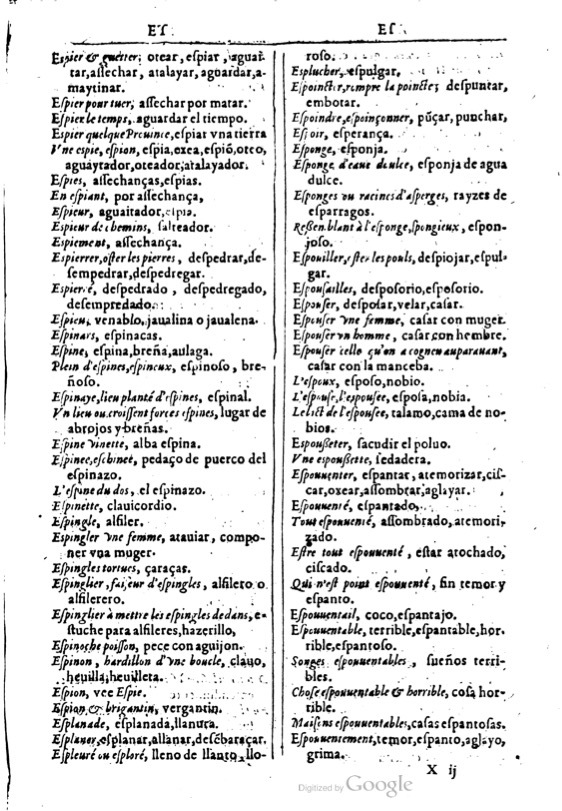 ES
Espier & guetter, otear, espiar, aguai-
tar, assechar, atalayar, aguardar, a-
maytinar.
Espier pour tuer, assechar por matar.
Espier le temps, aguardar el tiempo.
Espier quelque Prouince, espiar vna tierra
Vne espie, espion, espia, oxea, espiõ, oteo,
aguaytador, oteador, atalayador.
Espies, assechanças, espias.
En espiant, por assechança,
Espieur, aguaitador, espia.
Espieur de chemins, salteador.
Espiement, assechança.
Espierrer, oster les pierres, despedrar, de-
sempedrar, despedregar.
Espierré, despedrado, despedregado,
desempedrado.
Espieu, venablo, jaualina o jaualena.
Espinars, espinacas.
Espine, espina, breña, aulaga.
Plein d'espines, espineux, espinoso, bre-
ñoso.
Espinaye, lieu planté d'espines, espinal.
Vn lieu ou croissent forces espines, lugar de
abrojos y breñas.
Espine vinette, alba espina.
Espinee, eschinee, pedaço de puerco del
espinazo.
L'espine du dos, el espinazo.
Espinette, clauicordio.
Espingle, alfiler.
Espingler vne femme, atauiar, compo-
ner vna muger.
Espingles tortues, çaraças.
Espinglier, faiseur d'espingles, alfilero o
alfilerero.
Espinglier à mettre les espingles dedans, e-
stuche para alfileres, hazerillo,
Espinoche poisson, pece con aguijon.
Espinon, hardillon d'vne boucle, clauo,
heuilla, heuilleta.
Espion, vee Espie.
Espion & brigantin, vergantin.
Esplanade, esplanada, llanura.
Esplaner, esplanar, allanar, desẽbaraçar.
Espleuré ou esploré, lleno de llanto, llo-
ES
roso.
Esplucher, espulgar.
Espoincter, rompre la poincte, despuntar,
embotar.
Espoindre, espoinçonner, pũçar, punchar,
Espoir, esperança.
Esponge, esponja.
Esponge d'eau doulce, esponja de agua
dulce.
Esponges ou racines d'asperges, rayzes de
esparragos.
Ressenblant à l'esponge, spongieux, espon-
joso.
Espouiller, oster les pouls, despiojar, espul-
gar.
Espousailles, desposorio, esposorio.
Espouser, desposar, velar, casar.
Espouser vne femme, casar con muger.
Espouser vn homme, casar con hombre.
Espouser celle qu'on a cogneu auparauant,
casar con la manceba.
L'espoux, esposo, nobio.
L'espouse, l'espousee, esposa, nobia.
Le lict de l'espousee, talamo, cama de no-
bios.
Espousseter, sacudir el poluo.
Vne espoussette, sedadera.
Espouuenter, espantar, atemorizar, cis-
car, oxear, assombrar, aglayar.
Espouuenté, espantado.
Tout espouuenté, assombrado, atemori-
zado.
Estre tout espouuenté, estar atochado,
ciscado.
Qui n'est point espouuenté, sin temor y
espanto.
Espouuentail, coco, espantajo.
Espouuentable, terrible, espantable, hor-
rible, espantoso.
Songes espouuentables, sueños terri-
bles.
Chose espouuentable & horrible, cosa hor-
rible.
Maisons espouuentables, casas espantosas.
Espouuentement, temor, espanto, aglayo,
grima.
X ij
Digitized by Google